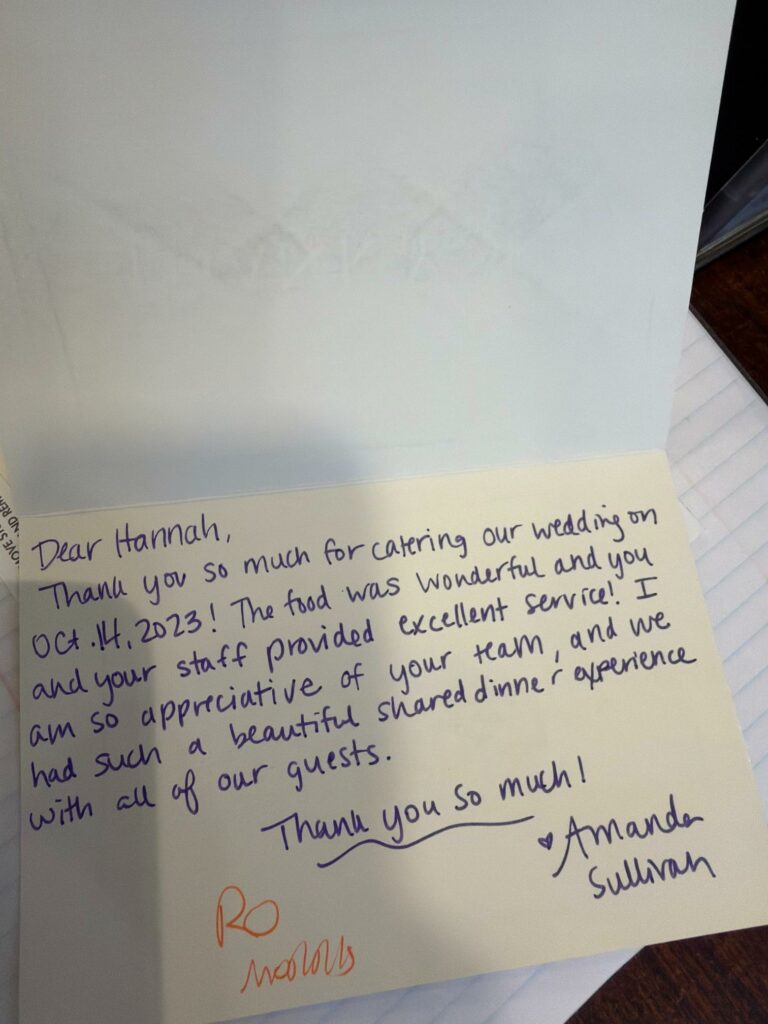 Dear Hannah,
Thank you so much for catering our wedding on
Oct. 14, 2023! The food was wonderful and you
and your staff provided excellent service! I
am so appreciative of your team, and we
had such a beautiful shared dinner experience
with all of our guests.
Thank you so much!
♥ Amanda
Sullivan
RO